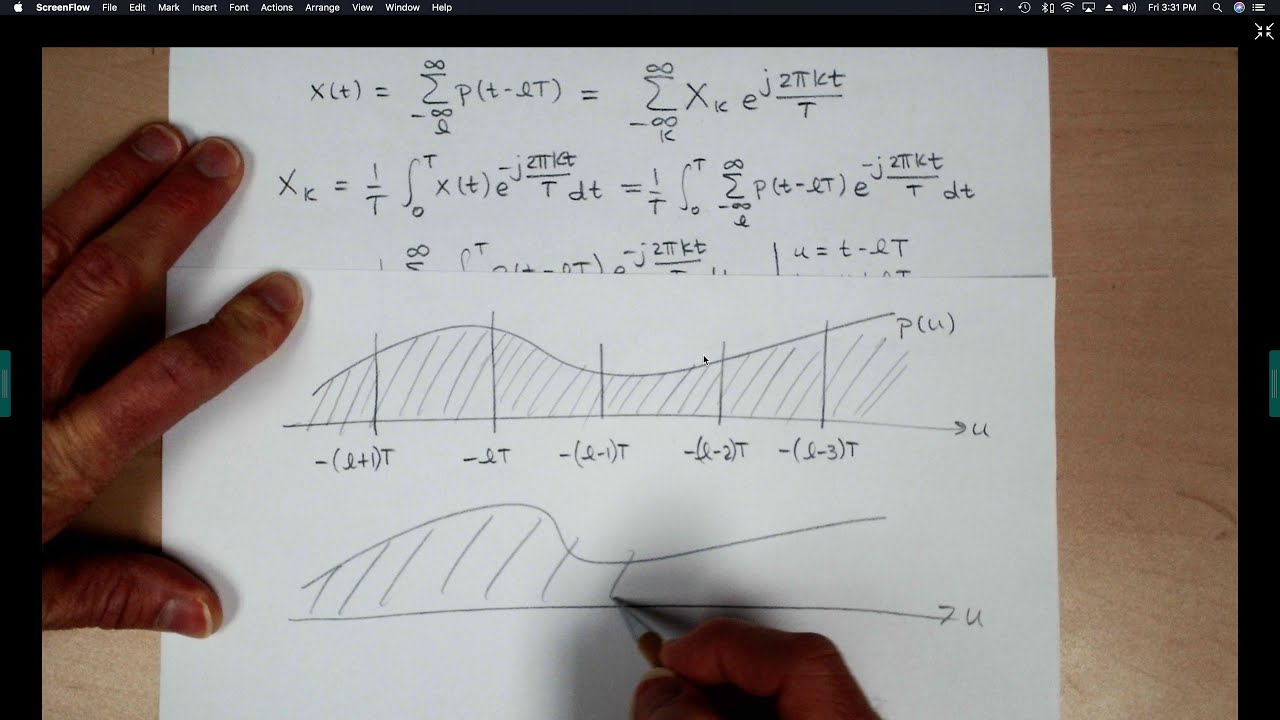 ScreenFlow File Edit Mark Insert Font Actions Arrange View Window Help Fri 3:31 PM
x(t) = ∑_{-∞ l}^{∞} p(t-lT) = ∑_{-∞ k}^{∞} X_k e^{j2πkt/T}
X_k = 1/T ∫_0^T x(t) e^{-j2πkt/T} dt = 1/T ∫_0^T ∑_{-∞ l}^{∞} p(t-lT) e^{-j2πkt/T} dt
∞ ∫^T p(t-lT) e^{-j2πkt} | u = t-lT
p(u)
u
-(l+1)T -lT -(l-1)T -(l-2)T -(l-3)T
u